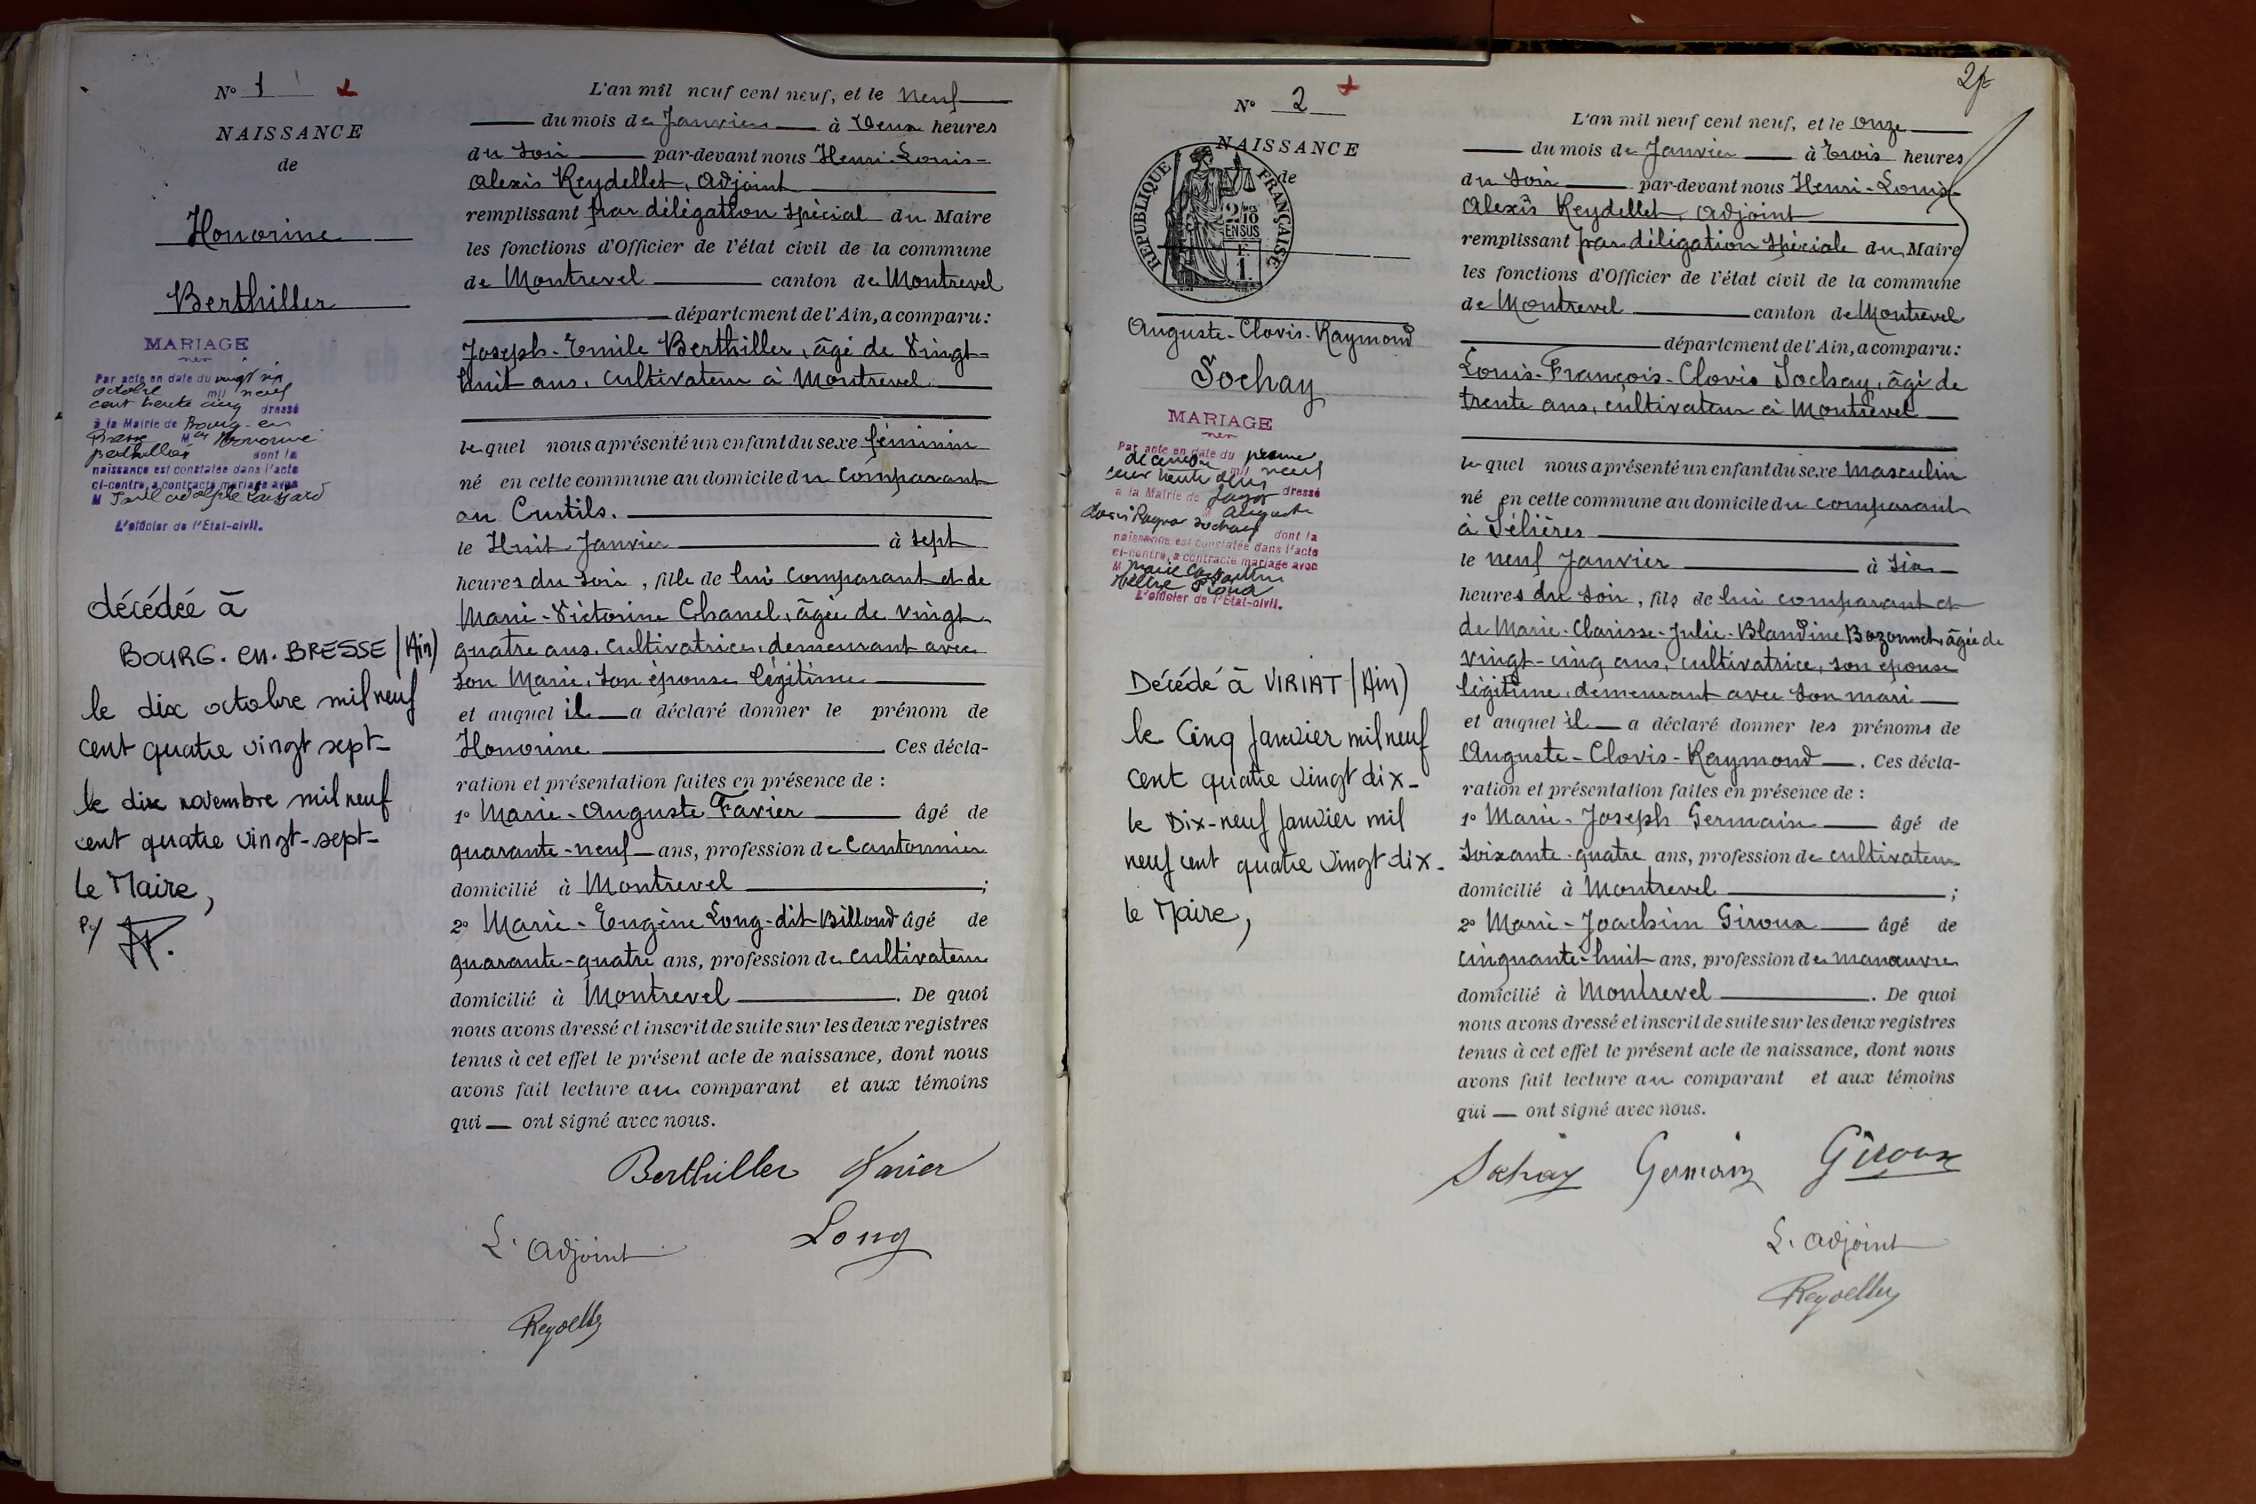 N° 1
NAISSANCE
de
Honorine
Berthiller
MARIAGE
Par acte en date du vingt six
octobre mil neuf
cent trente cinq dressé
à la Mairie de Bourg-en
Bresse M elle Honorine
Berthiller dont la
naissance est constatée dans l'acte
ci-contre, a contracté mariage avec
M Paul Adolphe
L'officier de l'État-civil.
décédée à
BOURG. en. BRESSE (Ain)
le dix octobre mil neuf
cent quatre vingt sept-
le dix novembre mil neuf
cent quatre vingt-sept-
le Maire,
P/
L'an mil neuf cent neuf, et le Neuf
du mois de Janvier à Deux heures
du soir par-devant nous Henri-Louis-
Alexis Reydellet, Adjoint
remplissant par délégation spécial du Maire
les fonctions d'Officier de l'état civil de la commune
de Montrevel canton de Montrevel
département de l'Ain, a comparu:
Joseph-Emile Berthiller, âgé de Vingt-
huit ans, cultivateur à Montrevel
lequel nous a présenté un enfant du sexe féminin
né en cette commune au domicile du comparant
au Curtils.
le Huit Janvier à sept
heures du soir, fille de lui comparant et de
Marie-Victorine Chanel, âgée de vingt-
quatre ans, cultivatrice, demeurant avec
son Marie, son épouse légitime
et auquel il a déclaré donner le prénom de
Honorine Ces décla-
ration et présentation faites en présence de :
1° Marie-Auguste Favier âgé de
quarante-neuf ans, profession de Cantonnier
domicilié à Montrevel ;
2° Marie-Eugène Long-dit-Billoud âgé de
quarante-quatre ans, profession de cultivateur
domicilié à Montrevel . De quoi
nous avons dressé et inscrit de suite sur les deux registres
tenus à cet effet le présent acte de naissance, dont nous
avons fait lecture au comparant et aux témoins
qui ont signé avec nous.
Berthiller Favier
L'Adjoint Long
Reydellet
2
N° 2
NAISSANCE
de
RÉPUBLIQUE FRANÇAISE
2/10
EN SUS
1
Auguste-Clovis-Raymond
Sochay
MARIAGE
Par acte en date du premier
décembre mil neuf
cent trente deux dressé
à la Mairie de Jayat
Auguste
Clovis Raymond Sochay dont la
naissance est constatée dans l'acte
ci-contre, a contracté mariage avec
M Marie
L'officier de l'État-civil.
Décédé à VIRIAT (Ain)
le Cinq Janvier mil neuf
cent quatre vingt dix-
le Dix-neuf Janvier mil
neuf cent quatre vingt dix-
le Maire,
L'an mil neuf cent neuf, et le onze
du mois de Janvier à Trois heures
du soir par-devant nous Henri-Louis-
Alexis Reydellet, Adjoint
remplissant par délégation spéciale du Maire
les fonctions d'Officier de l'état civil de la commune
de Montrevel canton de Montrevel
département de l'Ain, a comparu:
Louis-François-Clovis Sochay, âgé de
trente ans, cultivateur à Montrevel
lequel nous a présenté un enfant du sexe masculin
né en cette commune au domicile du comparant
à Sélières
le neuf Janvier à six
heures du soir, fils de lui comparant et
de Marie-Clarisse-Julie-Blandine Bozonnet, âgée de
vingt-cinq ans, cultivatrice, son épouse
légitime, demeurant avec son mari
et auquel il a déclaré donner les prénoms de
Auguste-Clovis-Raymond . Ces décla-
ration et présentation faites en présence de :
1° Marie-Joseph Germain âgé de
soixante-quatre ans, profession de cultivateur
domicilié à Montrevel ;
2° Marie-Joachim Giroux âgé de
cinquante-huit ans, profession de manœuvre
domicilié à Montrevel . De quoi
nous avons dressé et inscrit de suite sur les deux registres
tenus à cet effet le présent acte de naissance, dont nous
avons fait lecture au comparant et aux témoins
qui ont signé avec nous.
Sochay Germain Giroux
L'adjoint
Reydellet